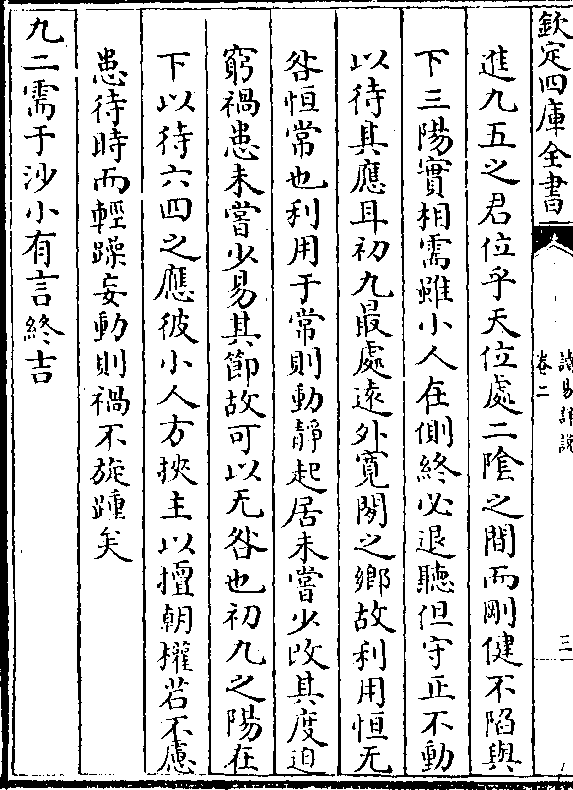 欽定四庫全書
讀易詳說
卷二
三
進九五之君位乎天位處二陰之間而剛健不陷與
下三陽實相需雖小人在側終必退聽但守正不動
以待其應耳初九最處遠外寛閒之鄉故利用恒无
咎恒常也利用于常則動靜起居未嘗少改其度迫
窮禍患未嘗少易其節故可以无咎也初九之陽在
下以待六四之應彼小人方挾主以擅朝權若不慮
患待時而輕躁妄動則禍不旋踵矣
九二需于沙小有言終吉